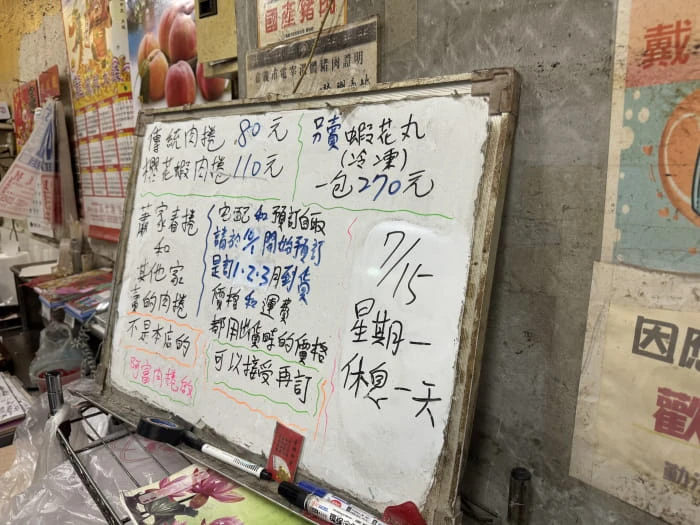 國產豬肉
傳統肉捲 80元
櫻花蝦肉捲 110元
另賣蝦花丸
(冷凍)
一包270元
蕭家春捲
和
其他家
賣的肉捲
不是本店的
阿富肉捲啟
宅配和預訂自取
請於 開始預訂
是訂1.2.3月到貨
價格和運費
都用出貨時的價格
可以接受再訂
7/15
星期一
休息一天
戴
因應
歡